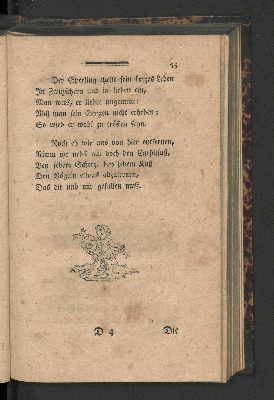 55
Der Sperling theilt sein kurzes Leben
In Zwitschern und in lieben ein,
Man weiß, er liebet ungemein:
Will man sein Singen nicht erheben;
So wird er wohl zu trösten seyn.
Noch eh wir uns von hier entfernen,
Nimm itzt nebst mir doch den Entschluß,
Bey jedem Scherz, bey jedem Kuß
Den Vögeln etwas abzulernen,
Das dir und mir gefallen muß.
D 4 Die